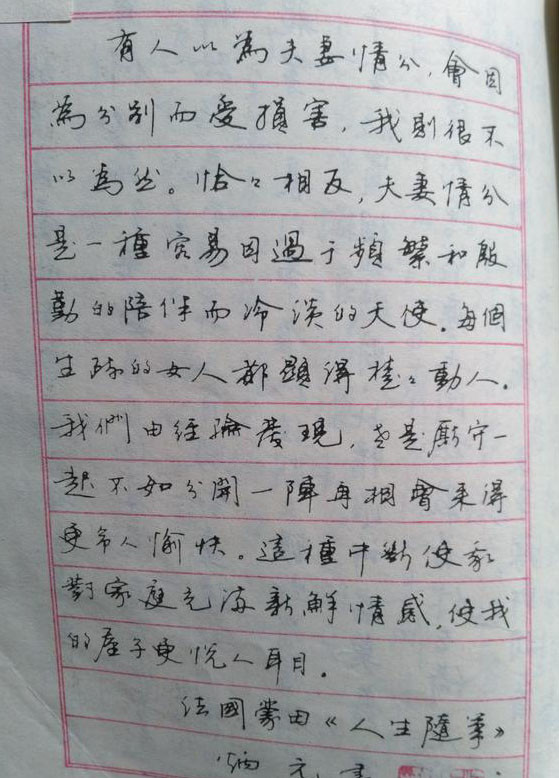 有人以為夫妻情分，會因
為分別而受損害，我則很不
以為然。恰々相反，夫妻情分
是一種容易因過于頻繁和殷
勤的陪伴而冷淡的天使。每個
生疏的女人都顯得楚々動人。
我們由經驗發現，老是厮守一
起不如分開一陣再相會來得
更令人愉快。這種中斷使我
對家庭充滿新鮮情感，使我
的屋子更悦人耳目。
法國蒙田《人生隨筆》
炳元